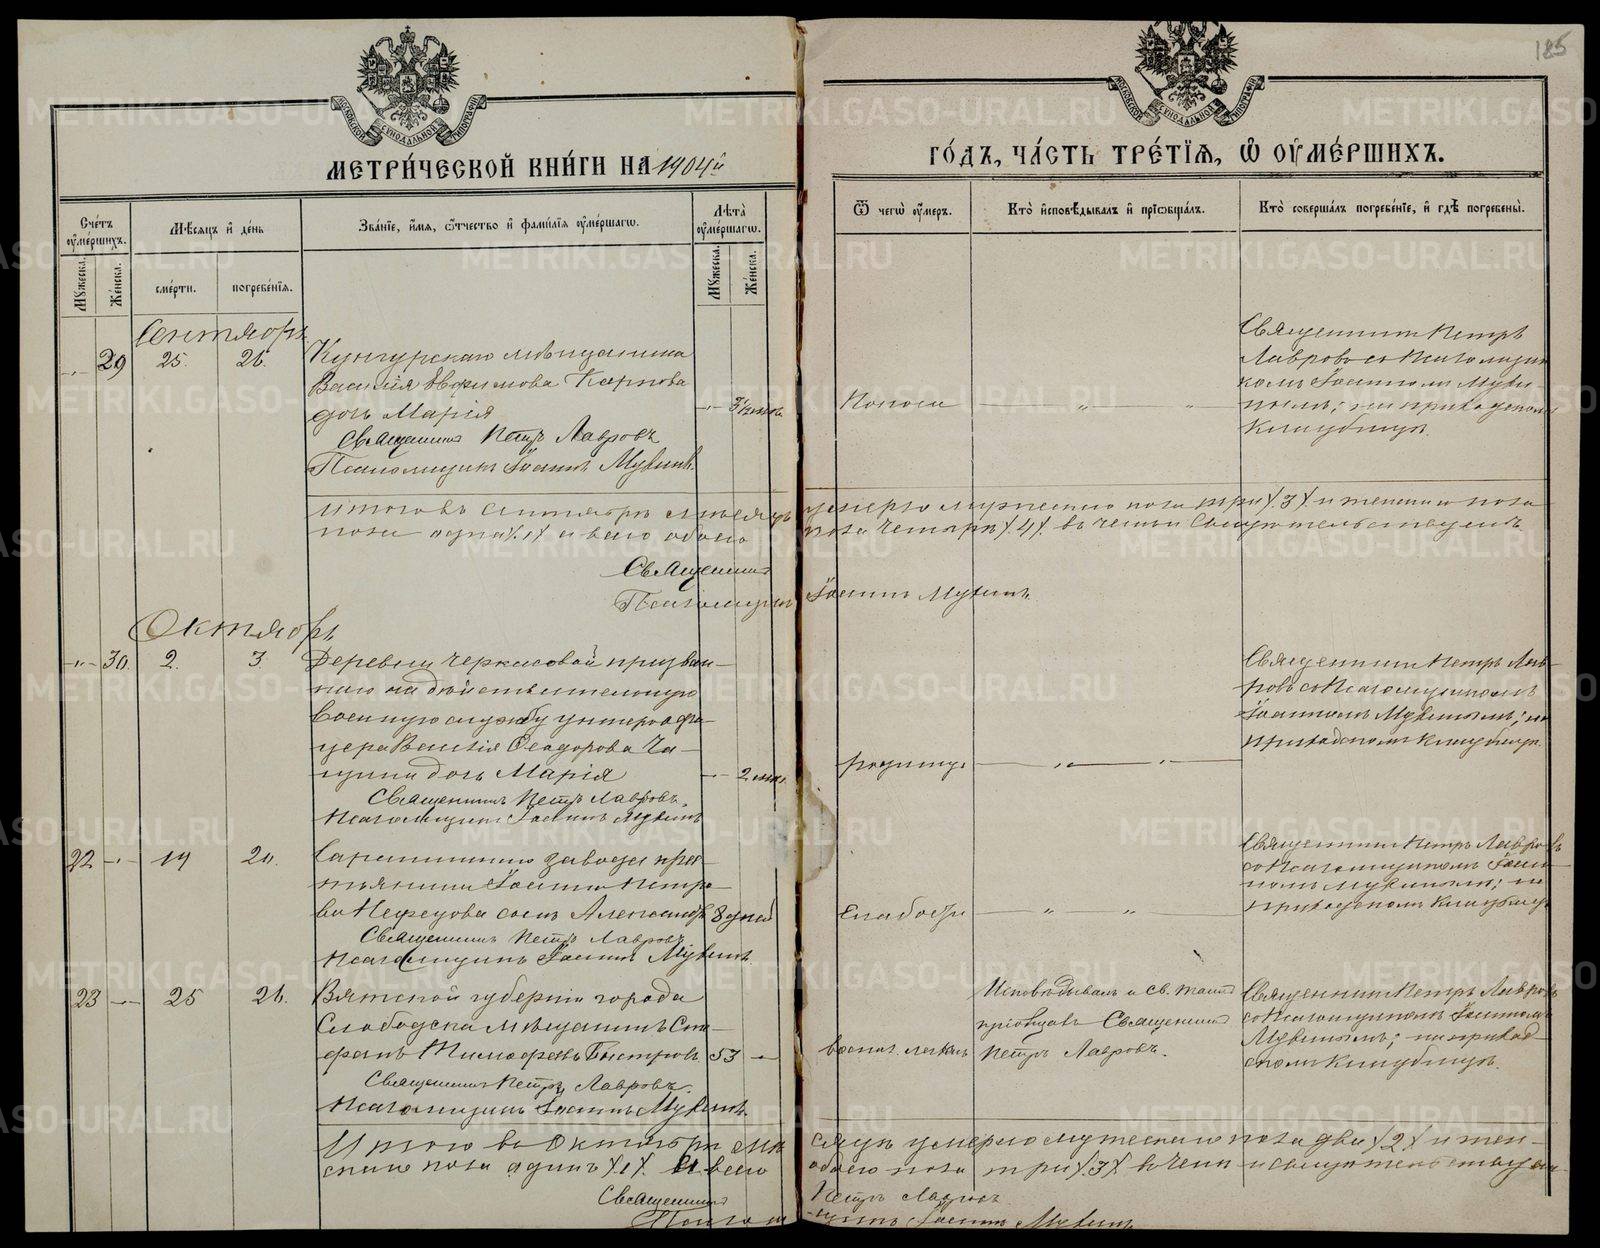 185
МЕТРИ́ЧЕСКОЙ КНИ́ГИ НА 1904й
ГО́ДЪ, ЧА́СТЬ ТРЕ́ТІѦ, Ѡ҆ ОУ҆МЕ́РШИХЪ.
МОСКОВСКОЙ СУНОДАЛЬНОЙ ТИПОГРАФІИ
МОСКОВСКОЙ СУНОДАЛЬНОЙ ТИПОГРАФІИ
Сче́тъ оу҆ме́ршихъ.
Мꙋжеска.
Же́нска.
Мѣ́сѧцъ и҆ де́нь
сме́рти.
погребе́нїѧ.
Зва́нїе, и҆́мѧ, ѻ҆́тчество и҆ фами́лїѧ оу҆ме́ршагѡ.
Лѣ́та оу҆ме́ршагѡ.
Мꙋжеска.
Же́нска.
Ѿ чегѡ̀ оу҆́меръ.
Кто̀ и҆сповѣ́дывалъ и҆ прїѡбща́лъ.
Кто̀ соверша́лъ погребе́нїе, и҆ гдѣ̀ погребены̀.
Сентябрь
29 25. 26.
Кунгурскаго мѣщанина
Василія Евфимова Карпова
дочь Марія
Священникъ Петръ Лавровъ
Псаломщикъ Іоаннъ Мукинъ.
Поноса
Священникъ Петръ
Лавровъ съ Псаломщи
комъ Іоанномъ Муки-
нымъ; на приходскомъ
кладбищѣ.
Итого въ Сентябрѣ мѣсяцѣ умерло мужескаго пола три /3/ и женскаго пола
одна /1/ и всего обоего пола четыре /4/. въ чемъ и свидѣтельствуемъ
Священникъ
Псаломщикъ Іоаннъ Мукинъ.
Октябрь
-"- 30. 2. 3.
Деревни Черкасовой призван-
наго на дѣйствительную
военную службу унтеръ офи-
цера Василія Ѳеодорова Ча-
дочь Марія
Священникъ Петръ Лавровъ.
Псаломщикъ Іоаннъ Мукинъ
Священникъ Петръ Лав-
ровъ съ Псаломщикомъ
Іоанномъ Мукинымъ; на
приходскомъ кладбищѣ.
22 -"- 19 20.
завода крес-
тьянина Іоанна Петро-
ва сынъ Александръ 8 дней
Священникъ Петръ Лавровъ
Псаломщикъ Іоаннъ Мукинъ.
Слабости
Священникъ Петръ Лавровъ
съ Псаломщикомъ Іоан-
номъ Мукинымъ; на
приходскомъ кладбищѣ
23 -"- 25 26.
Вятской губерніи города
Слободска мѣщанинъ Сте-
фанъ Тимофеевъ Быстровъ 53
Священникъ Петръ Лавровъ.
Псаломщикъ Іоаннъ Мукинъ.
воспал. легкихъ
Исповѣдывалъ и св. таинъ
пріобщалъ Священникъ
Петръ Лавровъ.
Священникъ Петръ Лавровъ
съ Псаломщикомъ Іоанномъ
Мукинымъ; на приход-
скомъ кладбищѣ.
Итого въ Октябрѣ мѣсяцѣ умерло мужескаго пола два /2/ и жен-
скаго пола одинъ /1/. и всего обоего пола три /3/ въ чемъ и свидѣтельствуемъ
Священникъ Петръ Лавровъ
Псаломщикъ Іоаннъ Мукинъ
METRIKI.GASO-URAL.RU